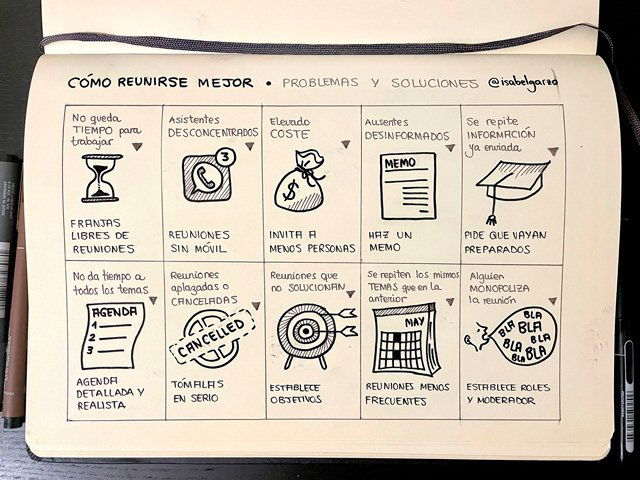 CÓMO REUNIRSE MEJOR • PROBLEMAS Y SOLUCIONES @isabelgarzo
No queda
TIEMPO para
trabajar
FRANJAS
LIBRES DE
REUNIONES
Asistentes
DESCONCENTRADOS
3
REUNIONES
SIN MÓVIL
Elevado
COSTE
$
INVITA A
MENOS PERSONAS
Ausentes
DESINFORMADOS
MEMO
HAZ UN
MEMO
Se repite
INFORMACIÓN
ya enviada
PIDE QUE VAYAN
PREPARADOS
No da tiempo a
todos los temas
AGENDA
1
2
3
AGENDA
DETALLADA Y
REALISTA
Reuniones
aplazadas o
CANCELADAS
CANCELLED
TÓMALAS
EN SERIO
Reuniones que
no SOLUCIONAN
ESTABLECE
OBJETIVOS
Se repiten los mismos
TEMAS que en la
anterior
MAY
REUNIONES MENOS
FRECUENTES
Alguien
MONOPOLIZA
la reunión
BLA
BLA BLA
BLA BLA
BLA BLA
ESTABLECE ROLES
Y MODERADOR